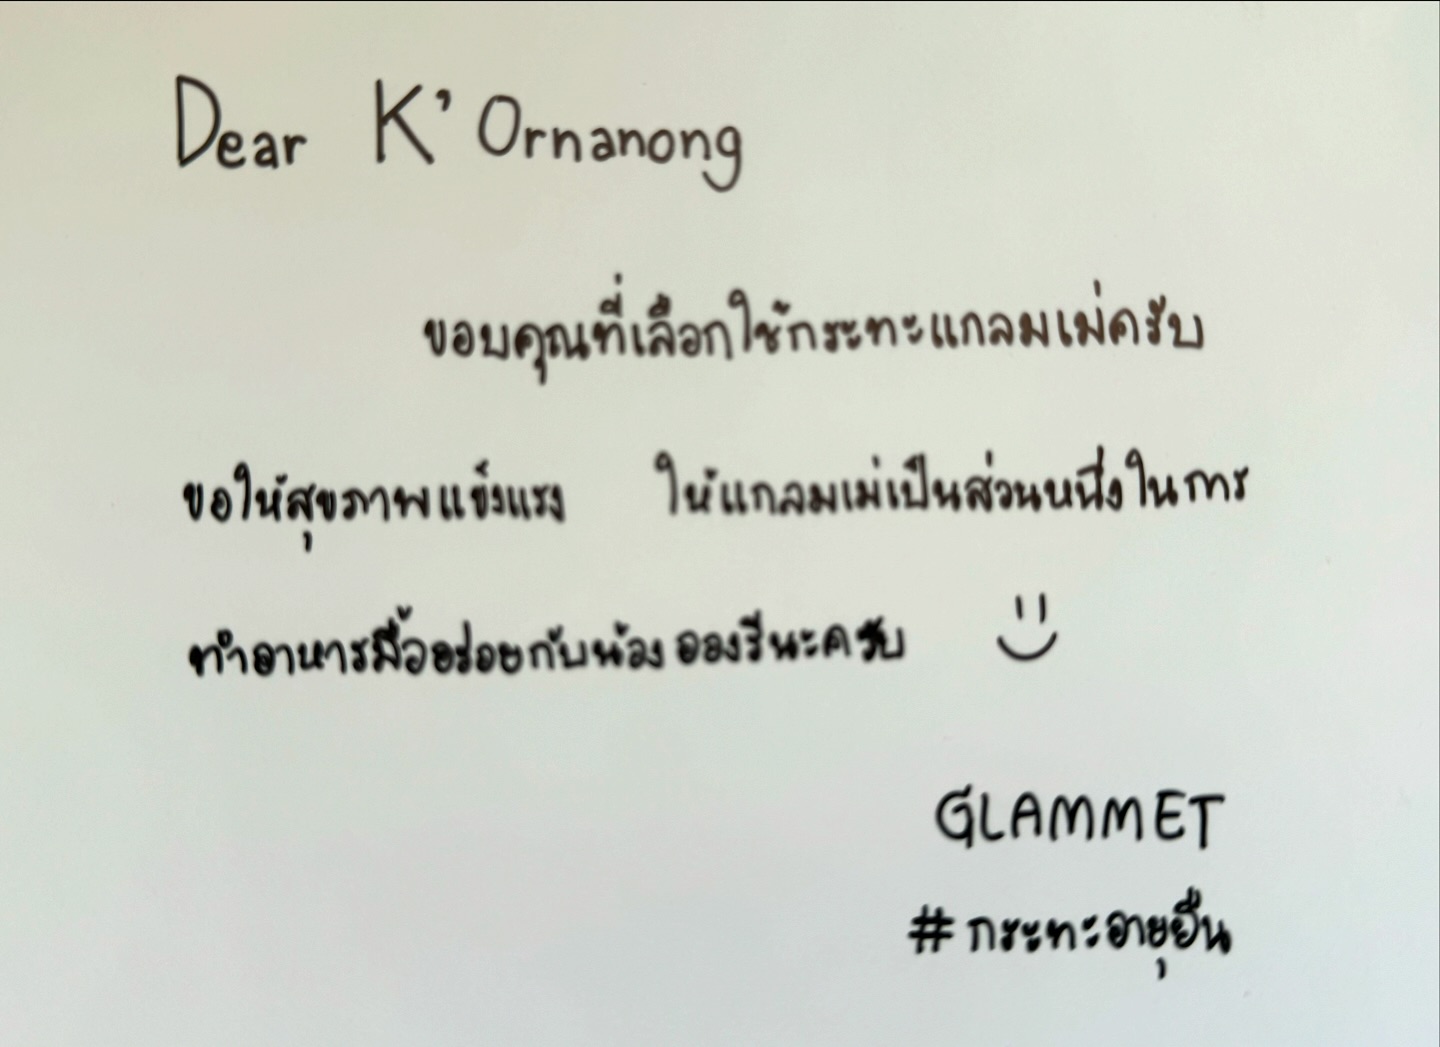 Dear K' Ornanong
ขอบคุณที่เลือกใช้กระทะแกลมเม่ครับ
ขอให้สุขภาพแข็งแรง ให้แกลมเม่เป็นส่วนหนึ่งในการ
ทำอาหารมื้ออร่อยกับน้อง ออร์รีนะครับ
GLAMMET
#กระทะอายุยืน